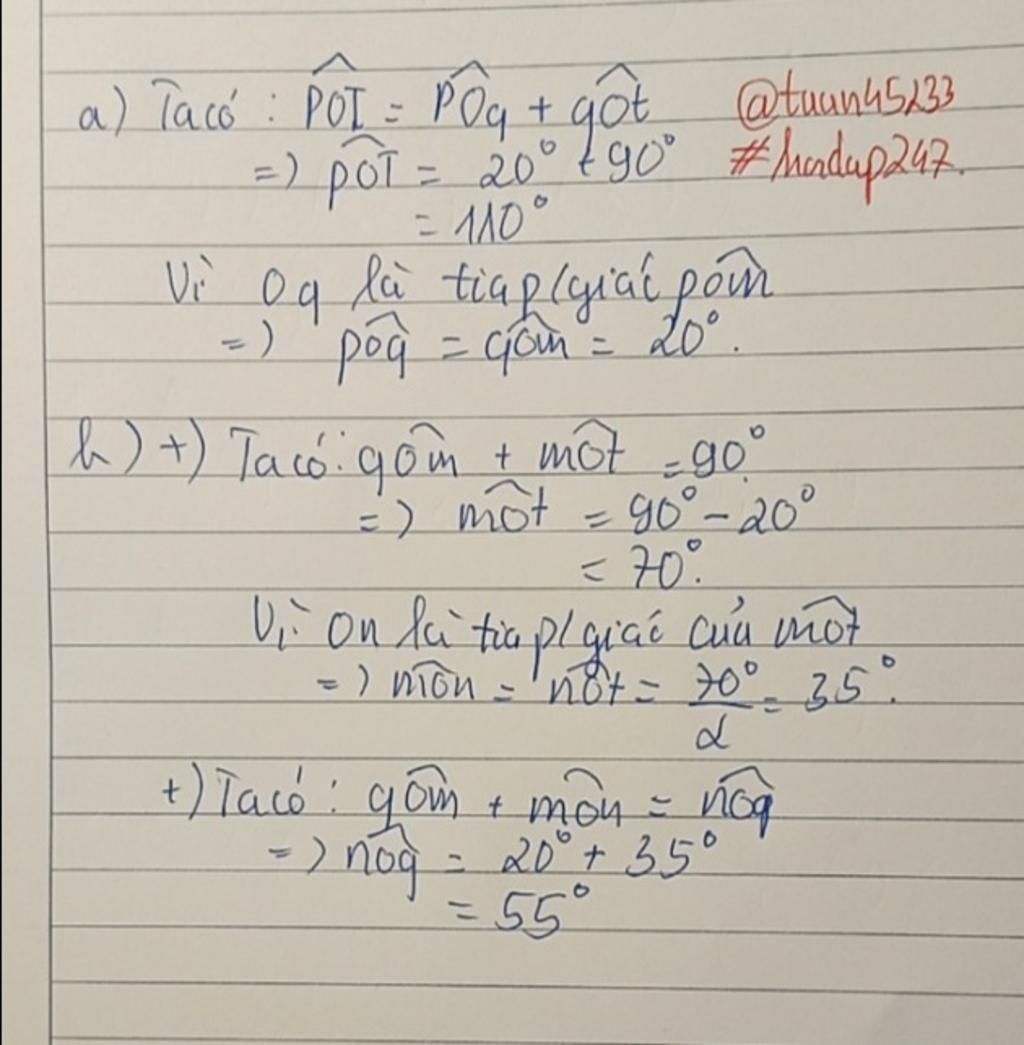 a) Ta có : POT = POq + qOt
@tuan45233
=> pOT = 20° + 90°
#hoidap247.
= 110°
Vì Oq là tia p/giác pOm
=> pOq = qOm = 20°.
b) +) Ta có: qOm + mOt = 90°.
=> mOt = 90° - 20°
= 70°.
Vì: On là tia p/giác của mOt
=> mOn = nOt = 70°/2 = 35°.
+) Ta có : qOm + mOn = nOq
=> nOq = 20° + 35°
= 55°